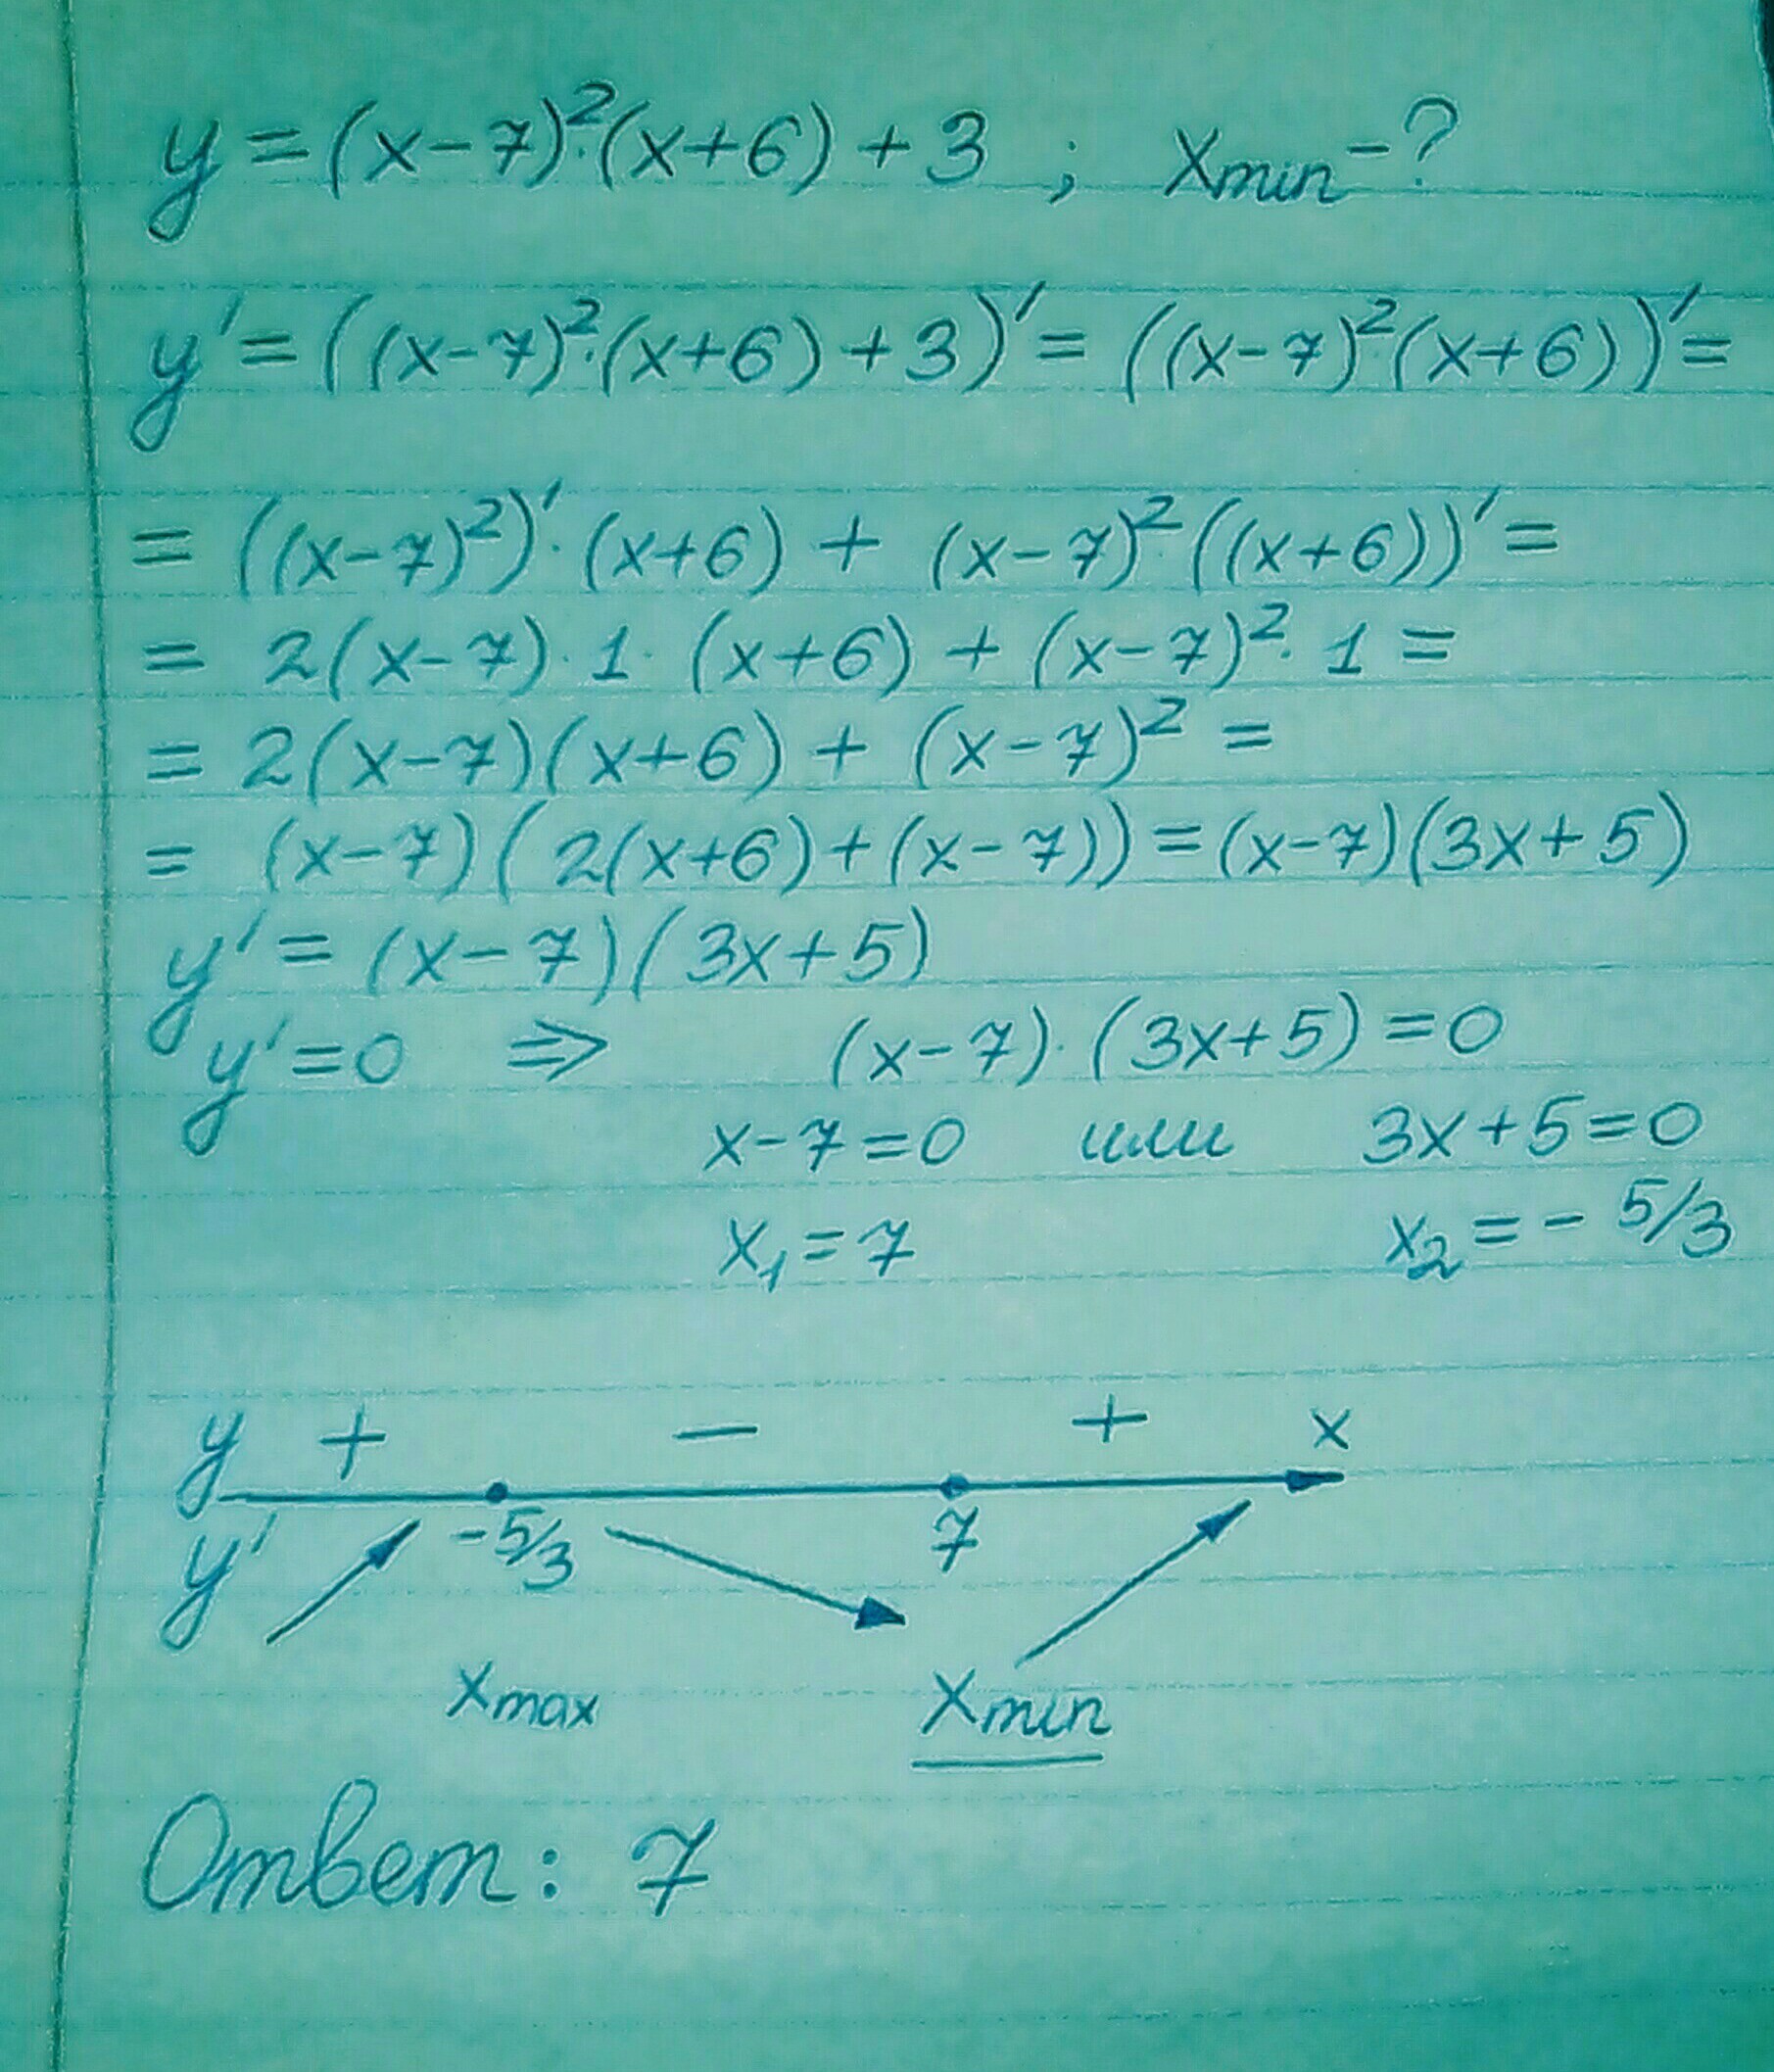 y = (x-7)²·(x+6) + 3 ; xmin - ?
y' = ((x-7)²·(x+6) + 3)' = ((x-7)²·(x+6))' =
= ((x-7)²)'·(x+6) + (x-7)²·((x+6))' =
= 2(x-7)·1·(x+6) + (x-7)²·1 =
= 2(x-7)(x+6) + (x-7)² =
= (x-7)(2(x+6)+(x-7)) = (x-7)(3x+5)
y' = (x-7)(3x+5)
y' = 0 ⇒ (x-7)·(3x+5) = 0
x-7=0 или 3x+5=0
x₁ = 7 x₂ = - 5/3
y + − + x
y' -5/3 7
xmax xmin
Ответ: 7